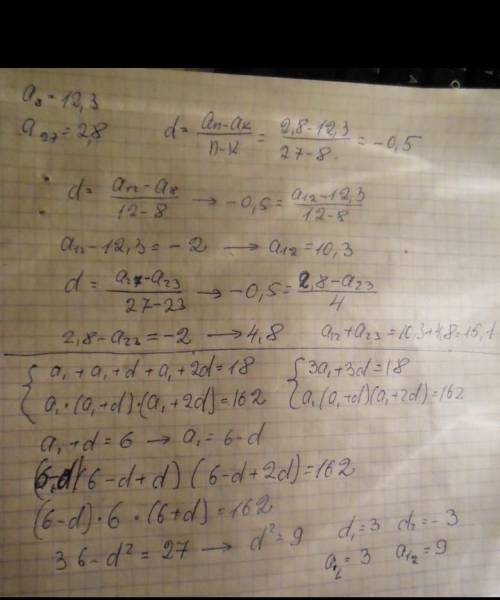 a₈ = 12,3
a₂₇ = 2,8 d = (aₙ - aₖ)/(n - k) = (2,8 - 12,3)/(27 - 8) = -0,5
d = (a₁₂ - a₈)/(12 - 8) → -0,5 = (a₁₂ - 12,3)/(12 - 8)
a₁₂ - 12,3 = -2 → a₁₂ = 10,3
d = (a₂₇ - a₂₃)/(27 - 23) → -0,5 = (2,8 - a₂₃)/4
2,8 - a₂₃ = -2 → 4,8 a₁₂ + a₂₃ = 10,3 + 4,8 = 15,1
{ a₁ + a₁ + d + a₁ + 2d = 18 { 3a₁ + 3d = 18
a₁·(a₁+d)·(a₁+2d) = 162 a₁(a₁+d)(a₁+2d) = 162
a₁ + d = 6 → a₁ = 6 - d
(6-d)(6 - d + d)(6 - d + 2d) = 162
(6-d)·6·(6+d) = 162
36 - d² = 27 → d² = 9 d₁ = 3 d₂ = -3
a₁ = 3 a₁₂ = 9